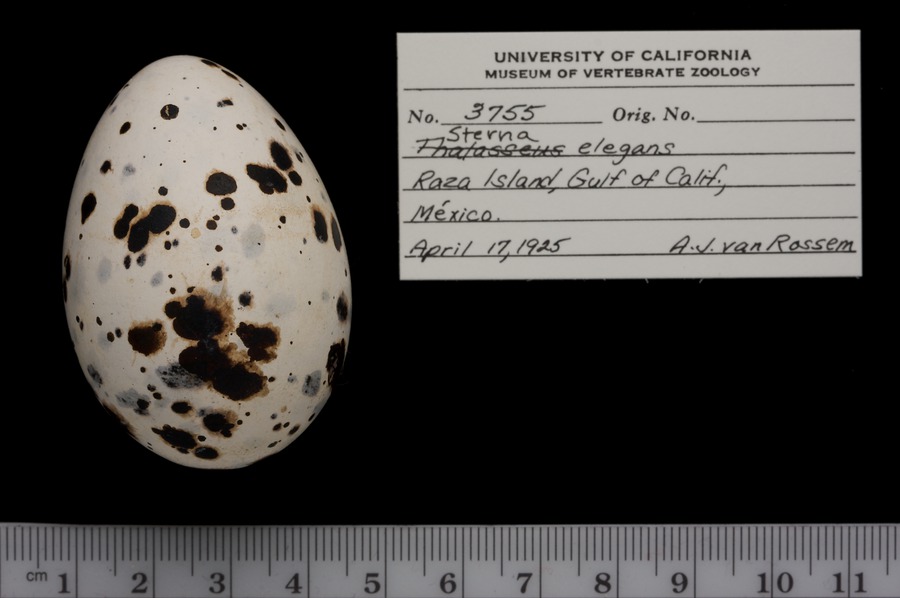 UNIVERSITY OF CALIFORNIA
MUSEUM OF VERTEBRATE ZOOLOGY
No. 3755 Orig. No.
Sterna
Thalasseus elegans
Raza Island, Gulf of Calif.,
México.
April 17, 1925 A.J. van Rossem
cm 1 2 3 4 5 6 7 8 9 10 11